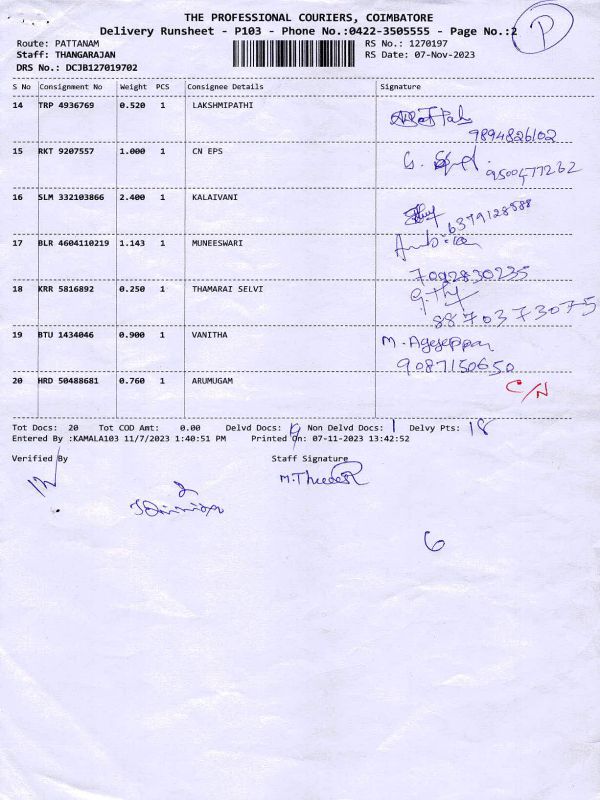 THE PROFESSIONAL COURIERS, COIMBATORE
Delivery Runsheet - P103 - Phone No.:0422-3505555 - Page No.:2 P
Route: PATTANAM RS No.: 1270197
Staff: THANGARAJAN RS Date: 07-Nov-2023
DRS No.: DCJB127019702
S No Consignment No Weight PCS Consignee Details Signature
14 TRP 4936769 0.520 1 LAKSHMIPATHI
9894826102
15 RKT 9207557 1.000 1 CN EPS
9500477262
16 SLM 332103866 2.400 1 KALAIVANI
6379128588
17 BLR 4604110219 1.143 1 MUNEESWARI
7092830235
18 KRR 5816892 0.250 1 THAMARAI SELVI
8870373075
19 BTU 1434046 0.900 1 VANITHA
9087150650
20 HRD 50488681 0.760 1 ARUMUGAM C/N
Tot Docs: 20 Tot COD Amt: 0.00 Delvd Docs: 19 Non Delvd Docs: 1 Delvy Pts: 18
Entered By :KAMALA103 11/7/2023 1:40:51 PM Printed On: 07-11-2023 13:42:52
Verified By Staff Signature
6